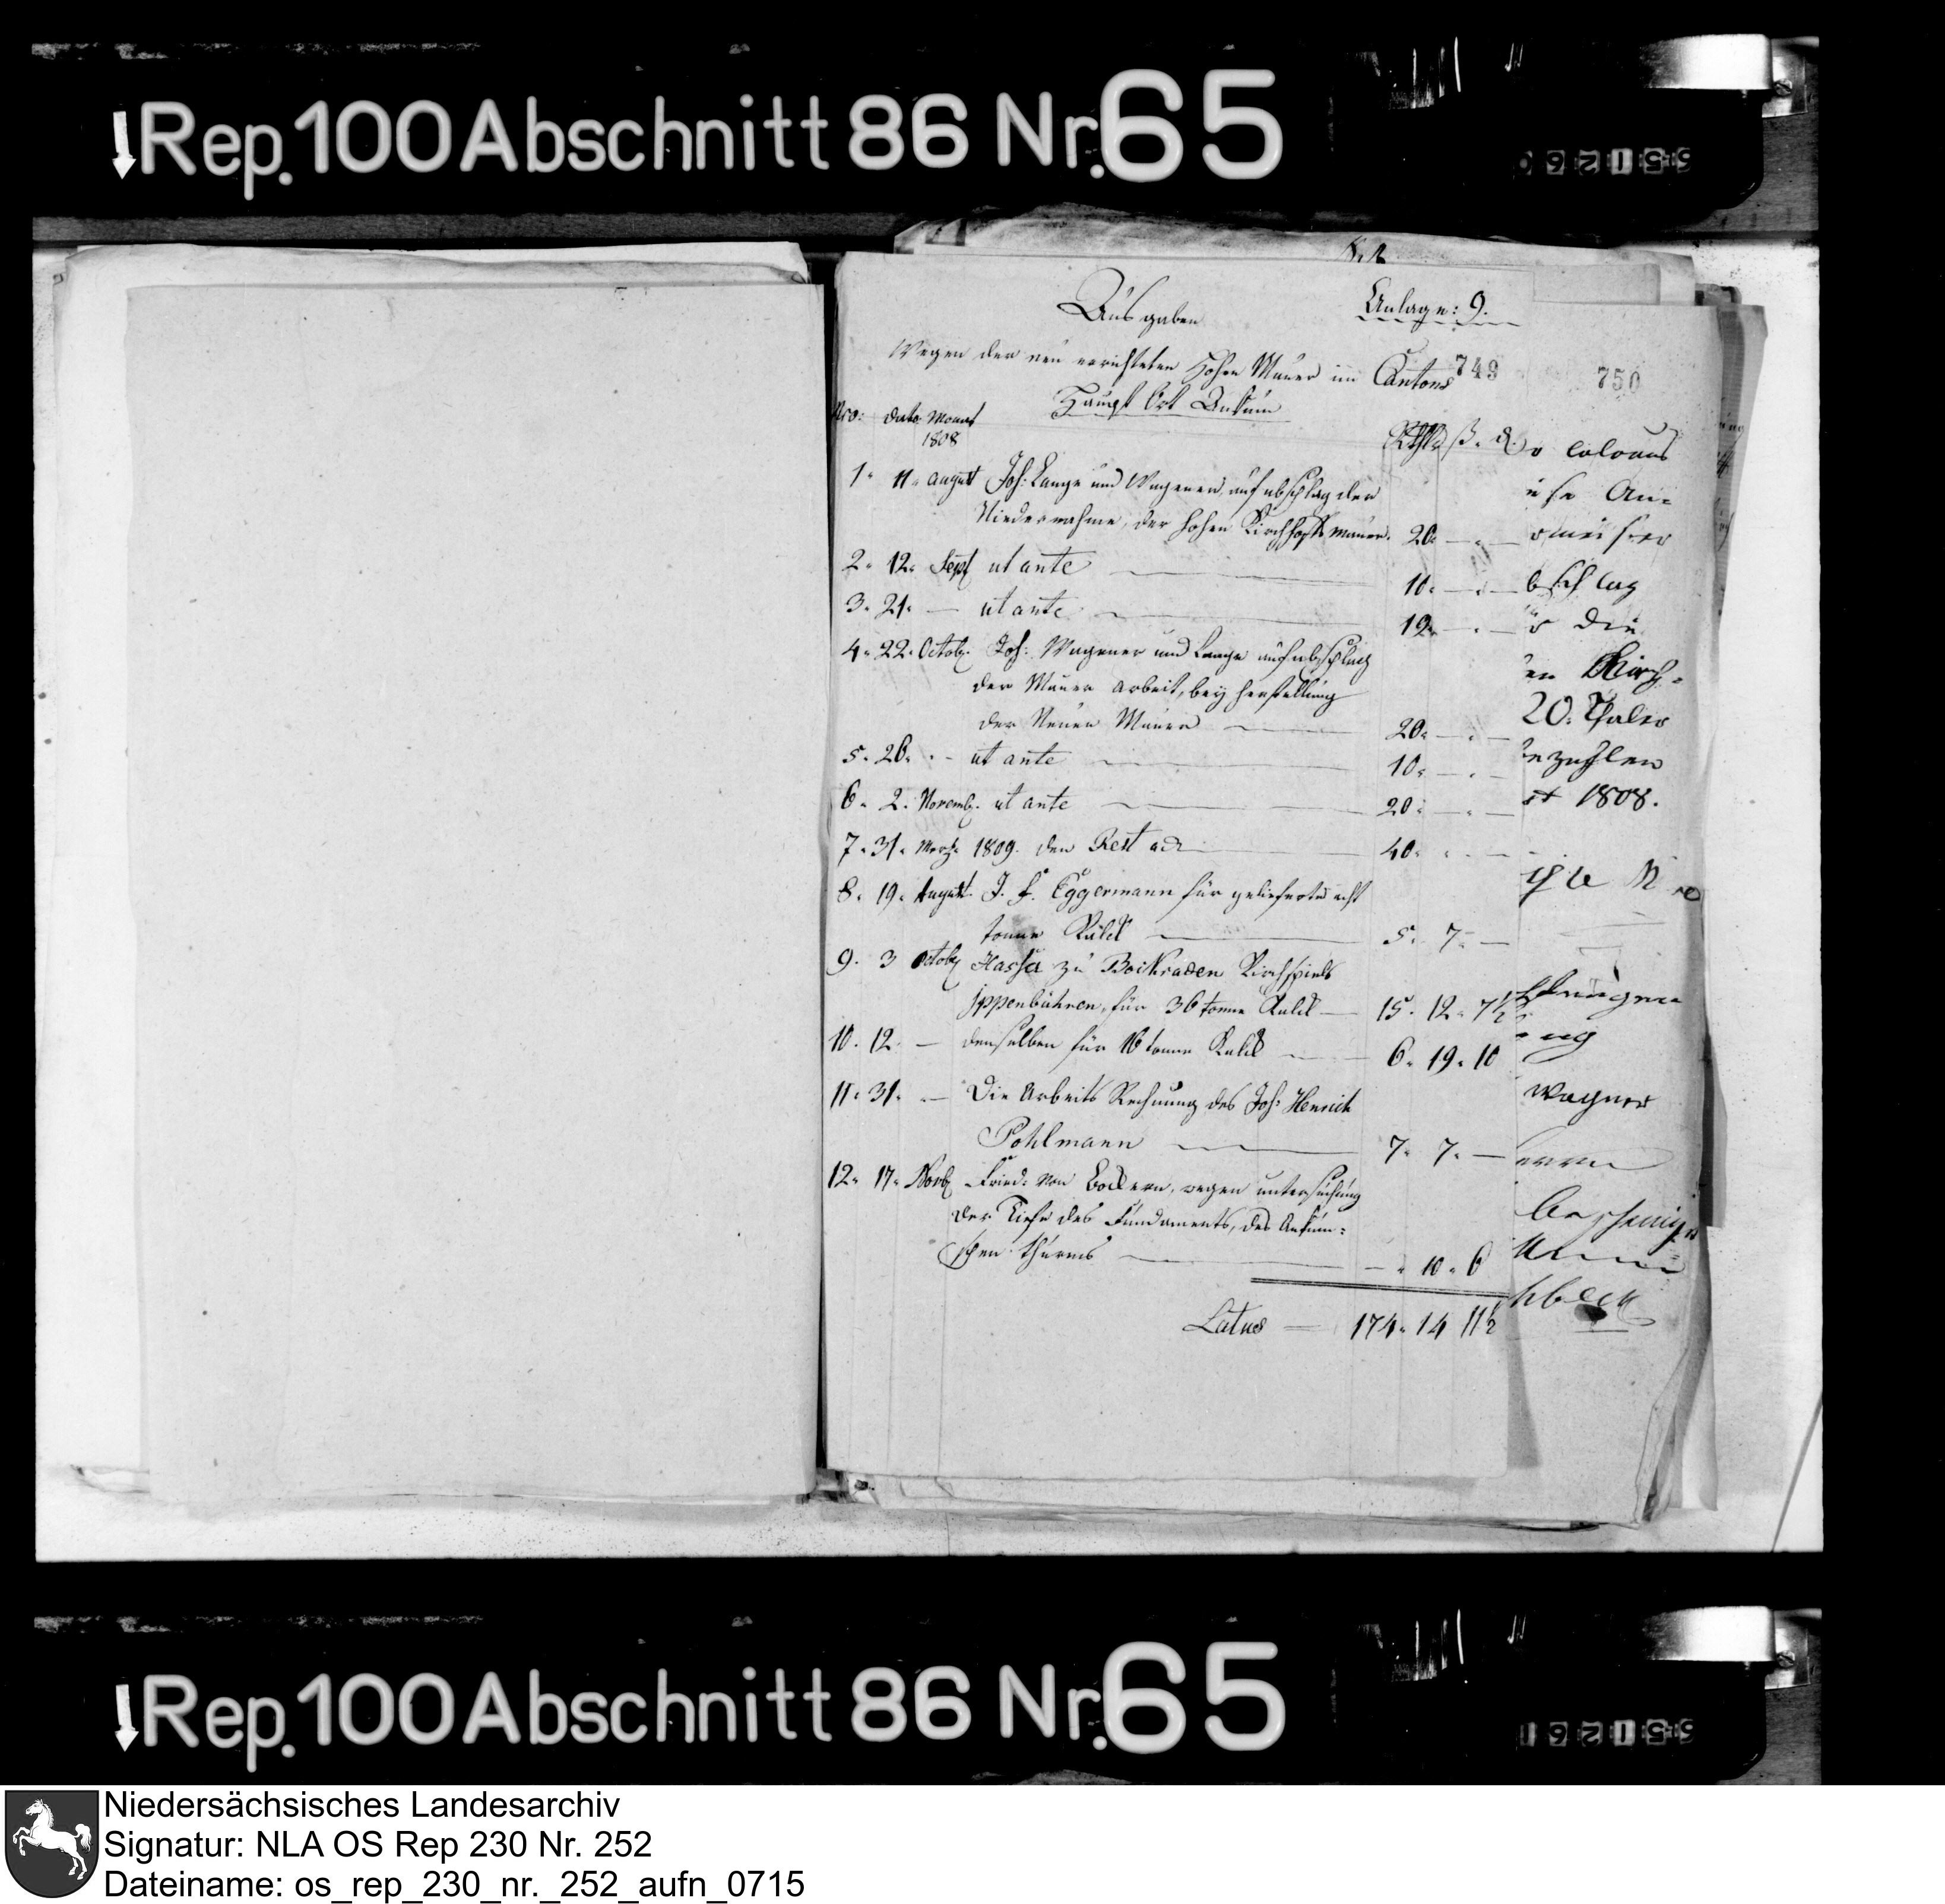 Rep. 100 Abschnitt 86 Nr. 65
Ausgaben
Anlage: 9.
Wegen der neu errichteten Hohen Mauer im Cantons
Haupt Ort Ankum
749
750
Nro: dato Monat
1808
Rthlr ß. d.
1. 11. august Joh: Lange und Wagener, auf abschlag der
Niedernahme, der hohen Kirchhoffs mauer. 20. — . —
2. 12. Sept ut ante — 10. — . —
3. 21. — ut ante — 19. — . —
4. 22. Octob. Joh: Wagener und Lange auf abschlag
der Mauer arbeit, bey herstellung
der Neuen Mauer — 20. — . —
5. 26. . — ut ante — 10. — . —
6. 2. Novemb. ut ante — 20. — . —
7. 31. Merz. 1809. den Rest ad — 40. . — —
8. 19. August. J. F. Eggermann für gelieferte acht
tonne Kalck — 5. 7. —
9. 3 Octob Hasse zu Bockraden Kirchspiels
Jppenbühren, für 36 tonne Kalck — 15. 12. 7½
10. 12. — denselben für 16 tonne Kalck — 6. 19. 10
11. 31. — Die Arbeits Rechnung des Joh: Henrich
Pohlmann — 7. 7. —
12. 17. Novb Fried: von wegen untersuchung
der Tiefe des Fundaments, des Ankum=
schen thurms — — . 10. 6
Latus — 174. 14 11½
colonus
bschlag
die
Kirch=
20. Thaler
bezahlen
1808.
Wagner
Rep. 100 Abschnitt 86 Nr. 65
Niedersächsisches Landesarchiv
Signatur: NLA OS Rep 230 Nr. 252
Dateiname: os_rep_230_nr._252_aufn_0715